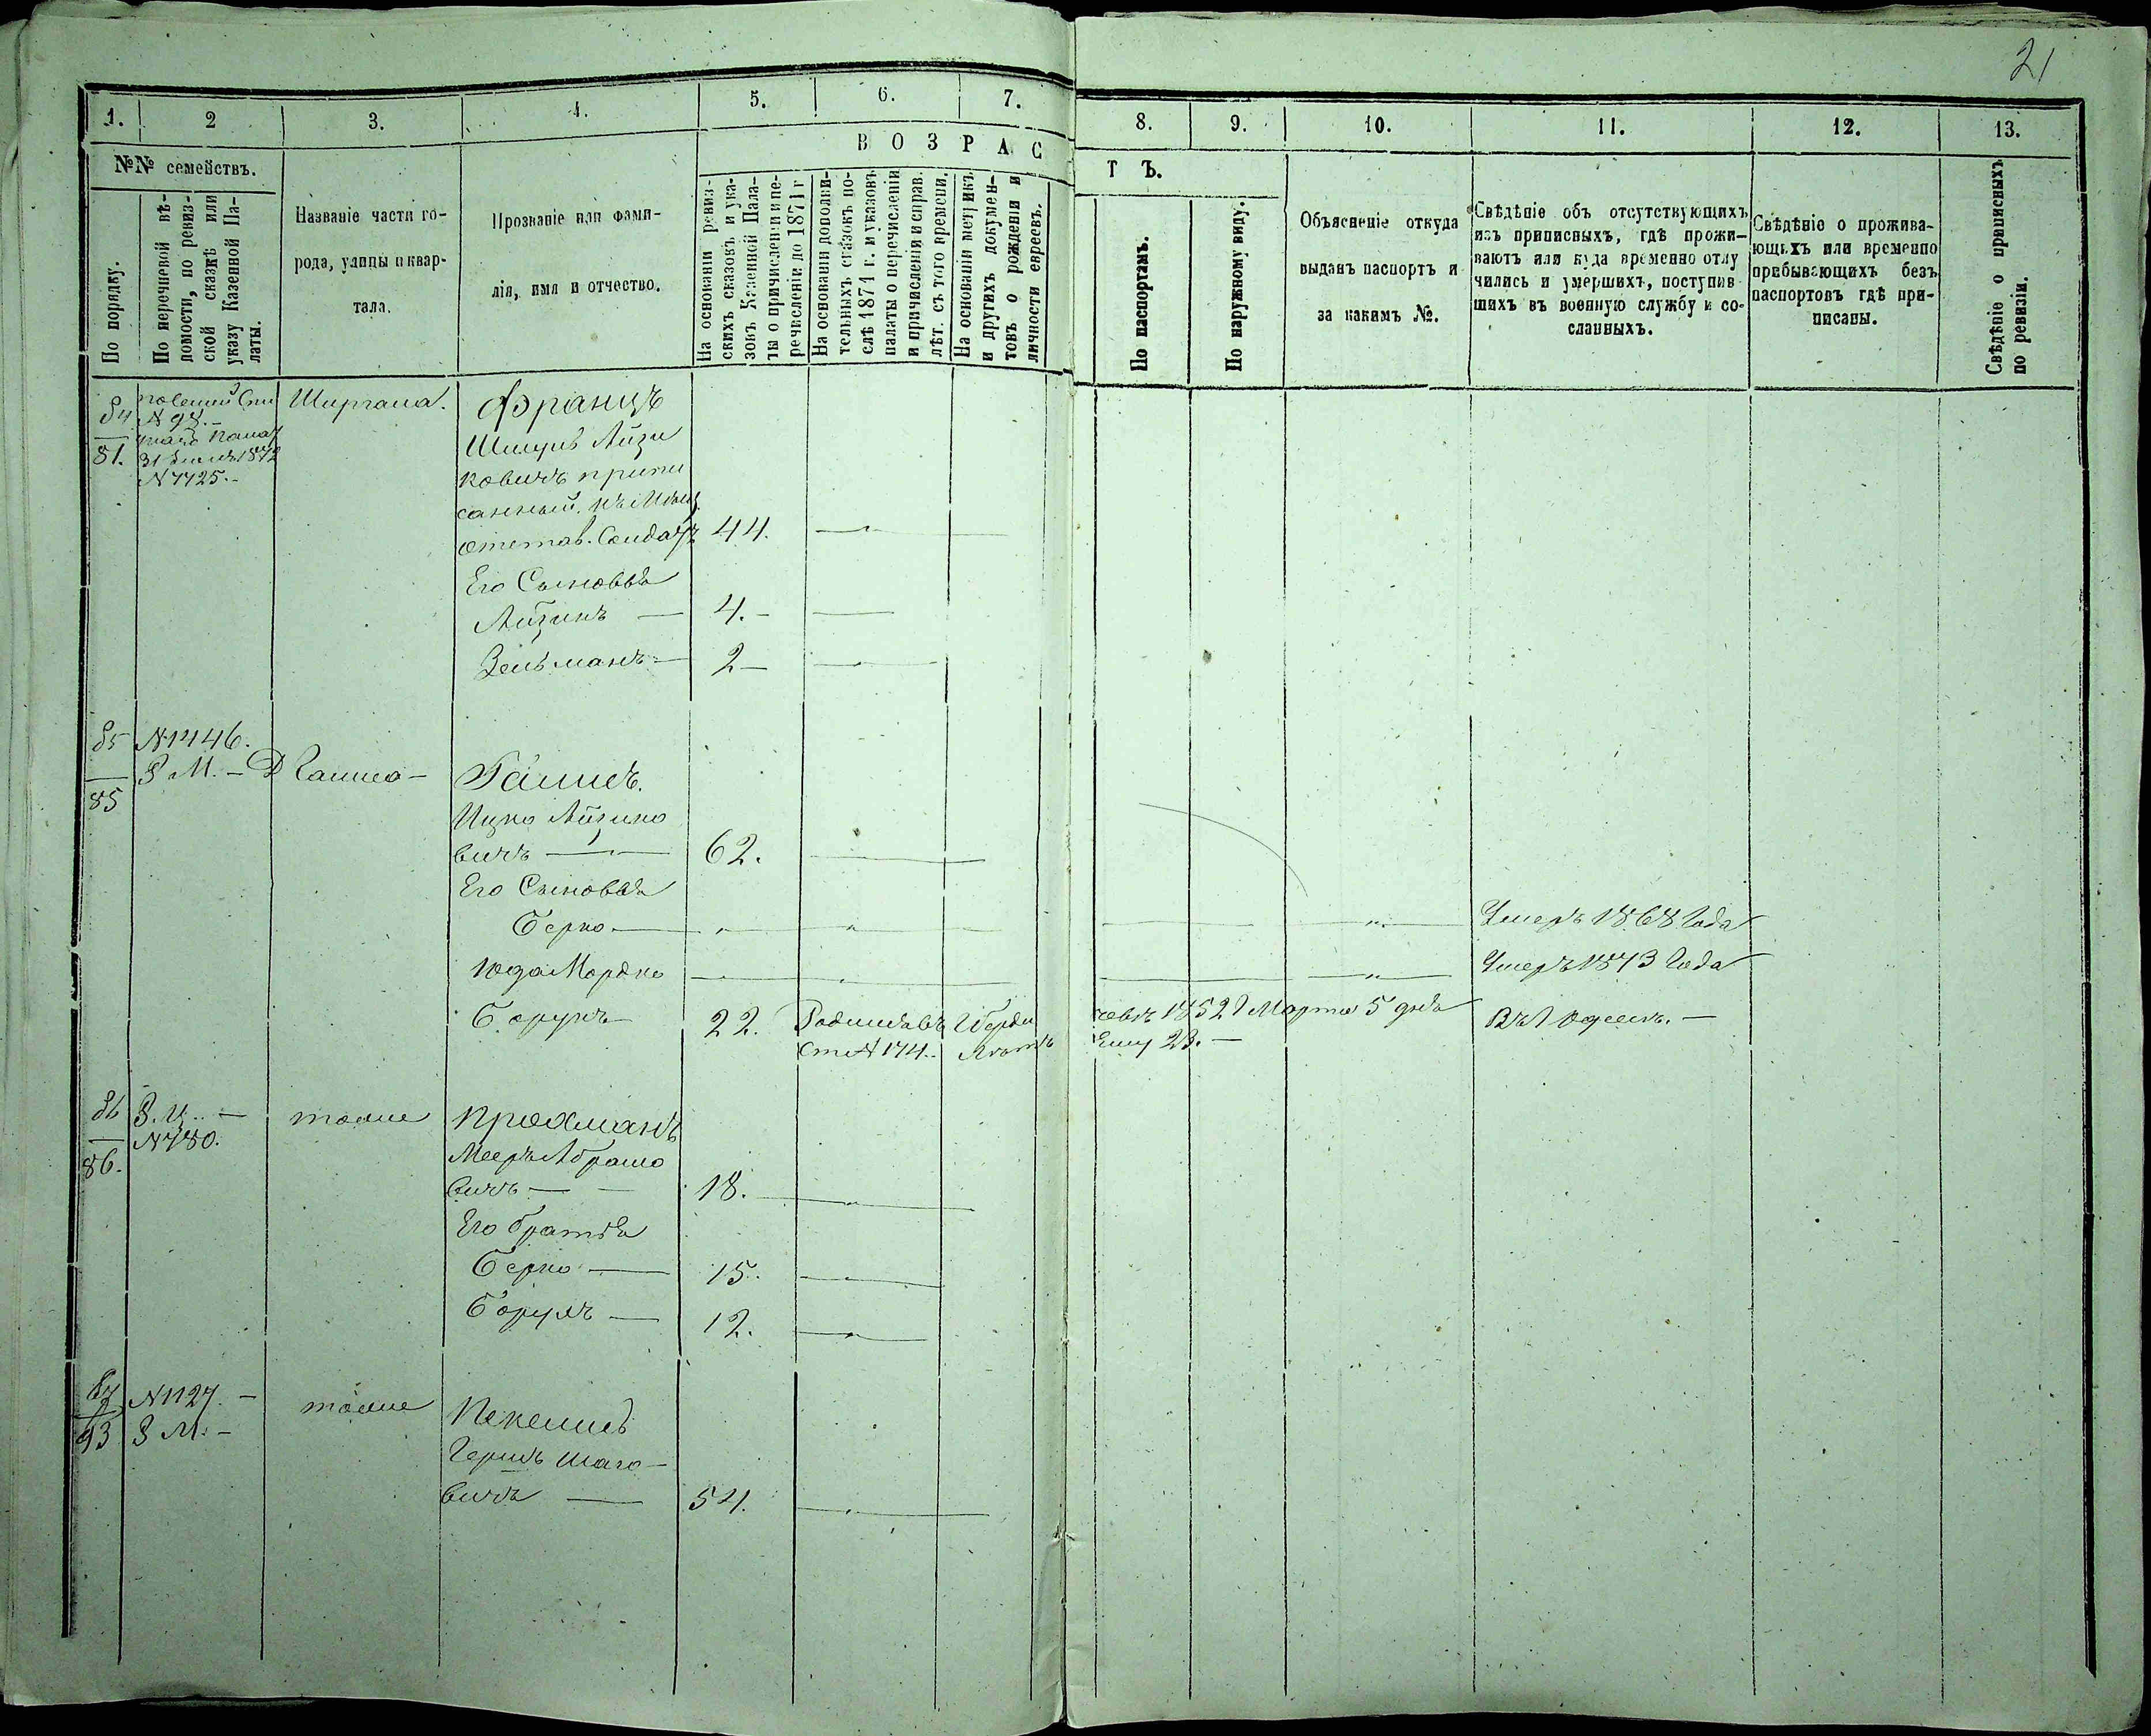 21
1. 2 3. 4. 5. 6. 7. 8. 9. 10. 11. 12. 13.
№№ семействъ.
По порядку.
По перечневой вѣ-
домости, по ревиз-
ской сказкѣ или
указу Казенной Па-
латы.
Названіе части го-
рода, улицы и квар-
тала.
Прозваніе или фами-
лія, имя и отчество.
ВОЗРАСТЪ.
На основаніи ревиз-
скихъ сказокъ и ука-
зокъ Казенной Пала-
ты о причисленіи и пе-
речисленіи до 1871 г
На основаніи дополни-
тельныхъ сказокъ по-
слѣ 1871 г. и указовъ
палаты о перечисленіи
и причисленіи и справ.
лѣт. съ того времени.
На основаніи метрикъ
и другихъ докумен-
товъ о рожденіи и
личности евреевъ.
По паспортамъ.
По наружному виду.
Объясненіе откуда
выданъ паспортъ и
за какимъ №.
Свѣдѣніе объ отсутствующихъ
изъ приписныхъ, гдѣ прожи-
ваютъ или куда временно отлу
чились и умершихъ, поступив
шихъ въ военную службу и со-
сланныхъ.
Свѣдѣніе о прожива-
ющихъ или временно
прибывающихъ безъ
паспортовъ гдѣ при-
писаны.
Свѣдѣніе о приписныхъ
по ревизіи.
84
81.
№ 98.-
31 1872
№ 7725.-
Францъ
Айзи
ковичъ припи
санный къ Мѣщ.
отстав. Солдатъ 44.
Его Сыновья
Айзикъ — 4.-
Зельманъ — 2 —
85
85
№ 1146.
Р М. —
Ицко Айзико
вичъ — 62.
Его Сыновья
Берко — Умеръ 1868 Года
Мордко Умеръ 1873 Года
Борухъ 22. Родился въ Берди
чевѣ 1852 Марта 5 дня
№ 174.. Ему 23. —
86
86.
Р. —
№ 780.
тоже
Прохманъ
Мееръ Абрамо
вичъ — 18.
Его братья
Берко — 15.
Борухъ — 12.
87
93
№ 1127. —
Р М. —
тоже
Гершъ
вичъ — 54.